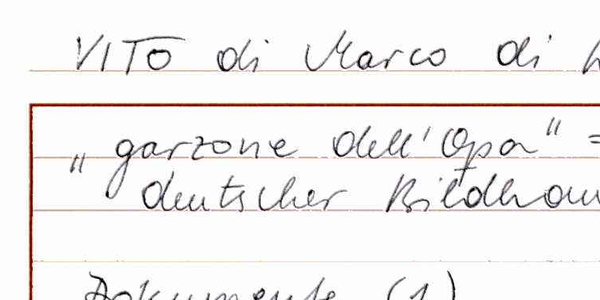 VITO di Marco di
"garzone dell'Opa" =
deutscher Bildhau
Dokumente (1)